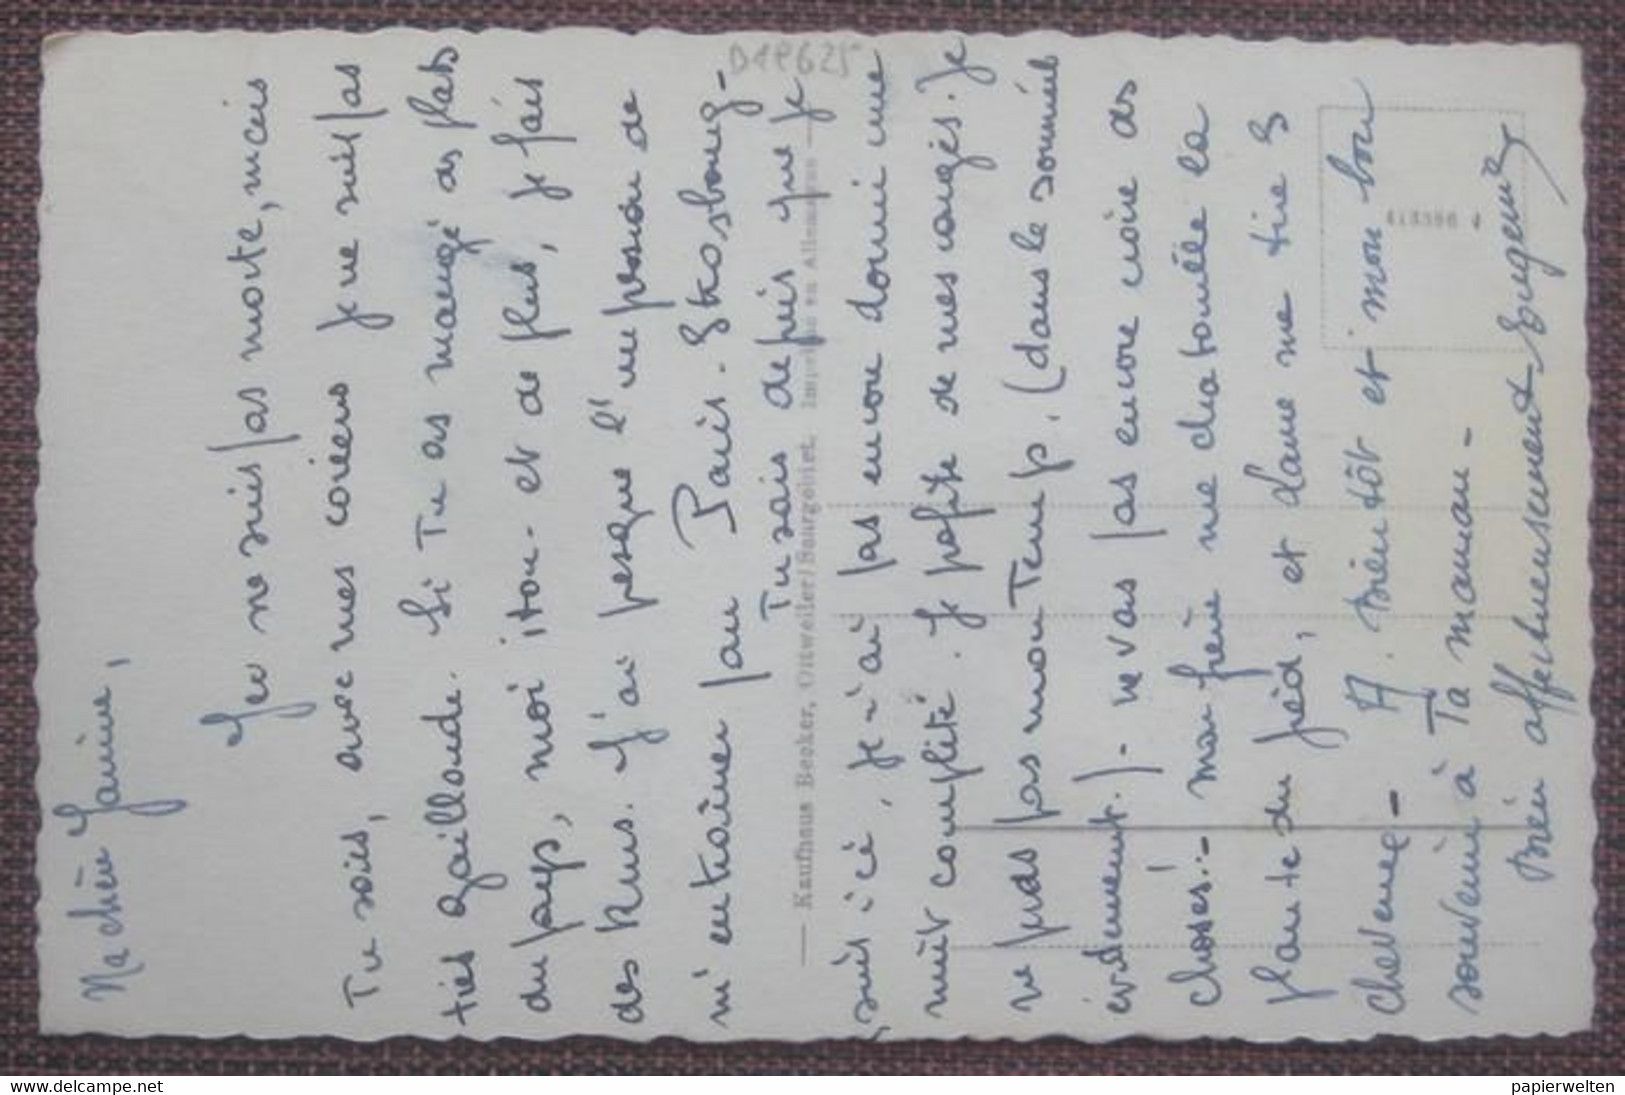 Ma chère Janine,
Je ne suis pas morte, mais
Tu sais, avec mes coriens je ne suis pas
très gaillarde. Si Tu as mangé des plats
du pays, moi itou. et de plus, je fais
des kms. J'ai presque l'impression de
m'entraîner pour Paris-Strasbourg-
Tu sais depuis que je
suis ici, je n'ai pas encore dormi une
nuit complète. Je profite de mes congés. Je
ne perds pas mon Temps, (dans le sommeil
évidemment.)- ne vas pas encore croire des
choses!- mon frère me chatouille la
plante du pied, et Laure me tire les
cheveux- A Bientôt et mon bon
souvenir à Ta maman-
Bien affectueusement Eugenie
— Kaufhaus Becker, Ottweiler/Saargebiet. Imprimé en Allemagne —
D18625
www.delcampe.net
papierwelten